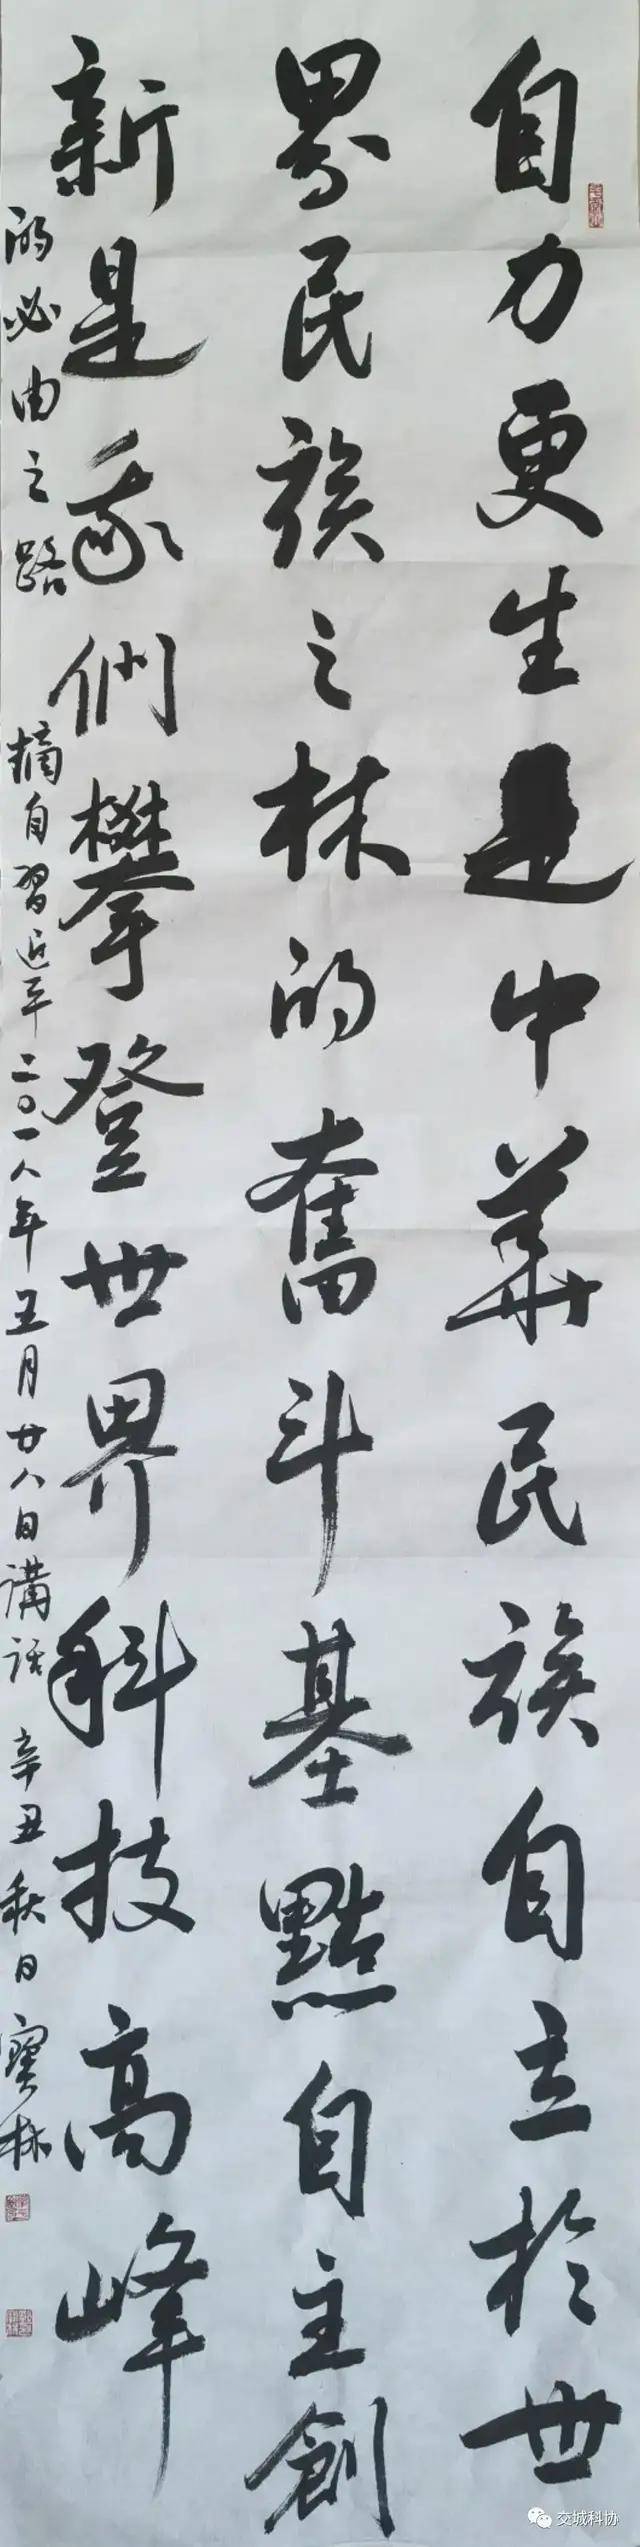 自力更生是中華民族自立於世
界民族之林的奮斗基點自主創
新是我們攀登世界科技高峰
的必由之路 摘自習近平二〇一八年五月廿八日講話 辛丑秋日寶林
交城科协